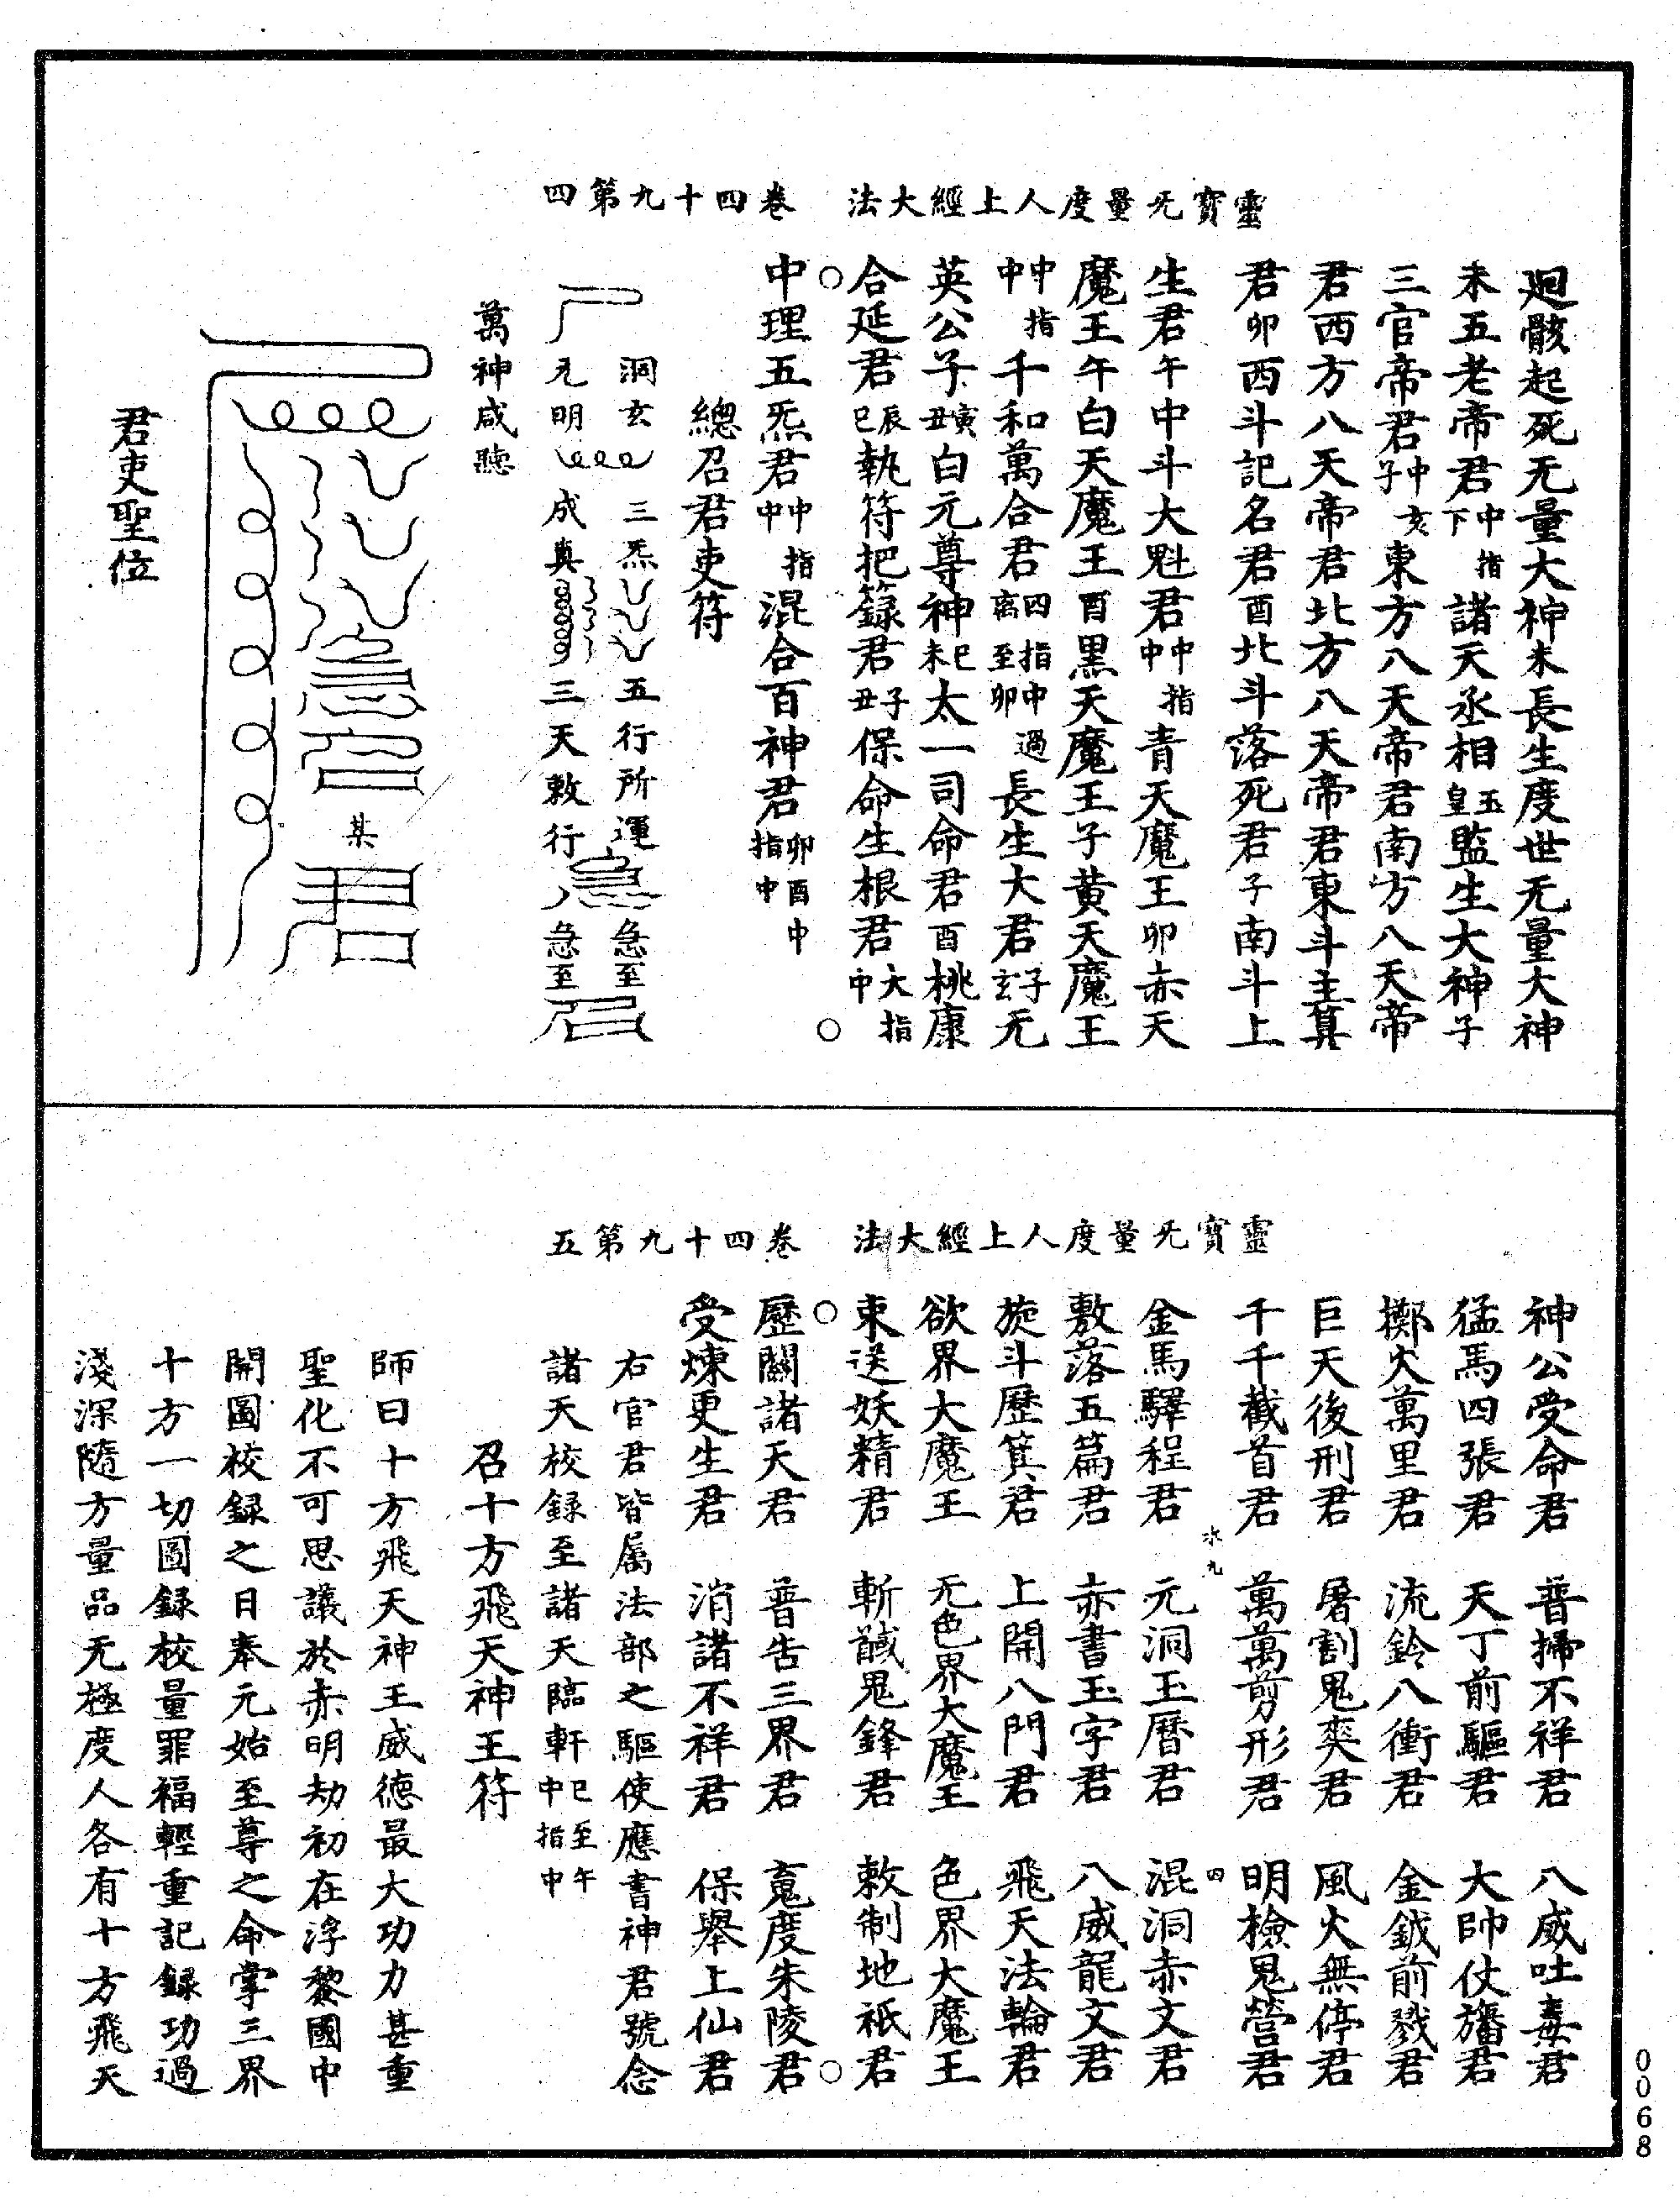 靈寶无量度人上經大法　卷四十九第四
廻骸起死无量大神未長生度世无量大神
未五老帝君中指中下諸天丞相玉皇監生大神子
三官帝君中亥子東方八天帝君南方八天帝
君西方八天帝君北方八天帝君東斗主算
君卯西斗記名君酉北斗落死君子南斗上
生君午中斗大魁君中指中青天魔王卯赤天
魔王午白天魔王酉黑天魔王子黄天魔王
中指中千和萬合君四指中過离至卯長生大君子玄无
英公子寅丑白元尊神巳未太一司命君酉桃康
合延君辰巳執符把籙君子丑保命生根君大指中
中理五炁君中指中混合百神君卯酉中指中
總召君吏符
洞玄　三炁　五行所運　急至
元明　成真　三天敕行　急至
萬神咸聽
某
君吏聖位
靈寶无量度人上經大法　卷四十九第五
神公受命君　普掃不祥君　八威吐毒君
猛馬四張君　天丁前驅君　大帥仗旛君
擲火萬里君　流鈴八衝君　金鉞前戮君
巨天後刑君　屠割鬼爽君　風火無停君
千千截首君　萬萬剪形君　明檢鬼營君
金馬驛程君　元洞玉曆君　混洞赤文君
敷落五篇君　赤書玉字君　八威龍文君
旋斗歷箕君　上開八門君　飛天法輪君
欲界大魔王　无色界大魔王　色界大魔王
束送妖精君　斬馘鬼鋒君　敕制地祇君
歷關諸天君　普告三界君　䰟度朱陵君
受煉更生君　消諸不祥君　保舉上仙君
右官君皆屬法部之驅使應書神君號念
諸天校録至諸天臨軒巳至午中指中
召十方飛天神王符
師曰十方飛天神王威德最大功力甚重
聖化不可思議於赤明劫初在浮黎國中
開圖校録之日奉元始至尊之命掌三界
十方一切圖録校量罪福輕重記録功過
淺深隨方量品无極度人各有十方飛天
0068